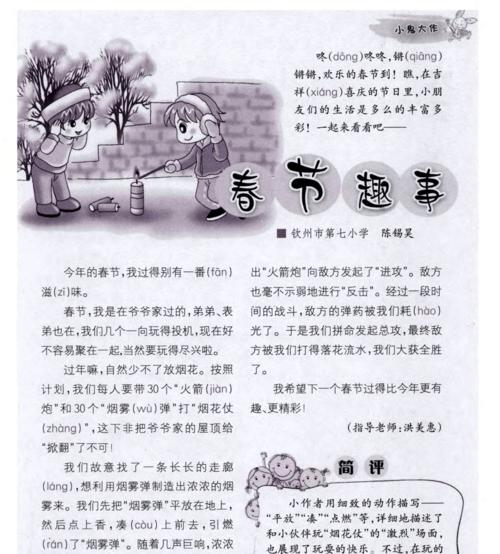 小鬼大作
咚(dōng)咚咚,锵(qiāng)
锵锵,欢乐的春节到！瞧,在吉
祥(xiáng)喜庆的节日里,小朋
友们的生活是多么的丰富多
彩！一起来看看吧——
春节趣事
■ 钦州市第七小学 陈锡昊
今年的春节,我过得别有一番(fān)
滋(zī)味。
春节,我是在爷爷家过的,弟弟、表
弟也在,我们几个一向玩得投机,现在好
不容易聚在一起,当然要玩得尽兴啦。
过年嘛,自然少不了放烟花。按照
计划,我们每人要带30个“火箭(jiàn)
炮”和30个“烟雾(wù)弹”打“烟花仗
(zhàng)”,这下非把爷爷家的屋顶给
“掀翻”了不可！
我们故意找了一条长长的走廊
(láng),想利用烟雾弹制造出浓浓的烟
雾来。我们先把“烟雾弹”平放在地上,
然后点上香,凑(còu)上前去,引燃
(rán)了“烟雾弹”。随着几声巨响,浓浓
出“火箭炮”向敌方发起了“进攻”。敌方
也毫不示弱地进行“反击”。经过一段时
间的战斗,敌方的弹药被我们耗(hào)
光了。于是我们拼命发起总攻,最终敌
方被我们打得落花流水,我们大获全胜
了。
我希望下一个春节过得比今年更有
趣、更精彩！
(指导老师:洪美惠)
简评
小作者用细致的动作描写——
“平放”“凑”“点燃”等,详细地描述了
和小伙伴玩“烟花仗”的“激烈”场面,
也展现了玩耍的快乐。不过,在玩的